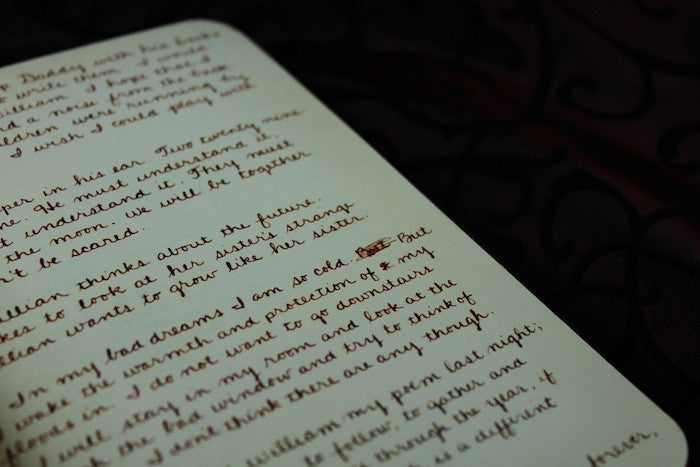 p Daddy with his books
o write them. I would
illiam. I hope that I
d a noise from the
ildren were running by
I wish I could play with
per in his ear Two twenty nine
ne. He must understand it.
t understand it. They must
the moon. We will be together
n't be scared.
illian thinks about the future.
kes to look at her sister's strange
llian wants to grow like her sister.
In my bad dreams I am so cold. But But
I wake the warmth and protection of my
floods in. I do not want to go downstairs
I will stay in my room and look at the
h the bad window and try to think of
I don't think there are any though.
William my poem last night;
to follow, to gather and
through the year, if
is a different
forever,